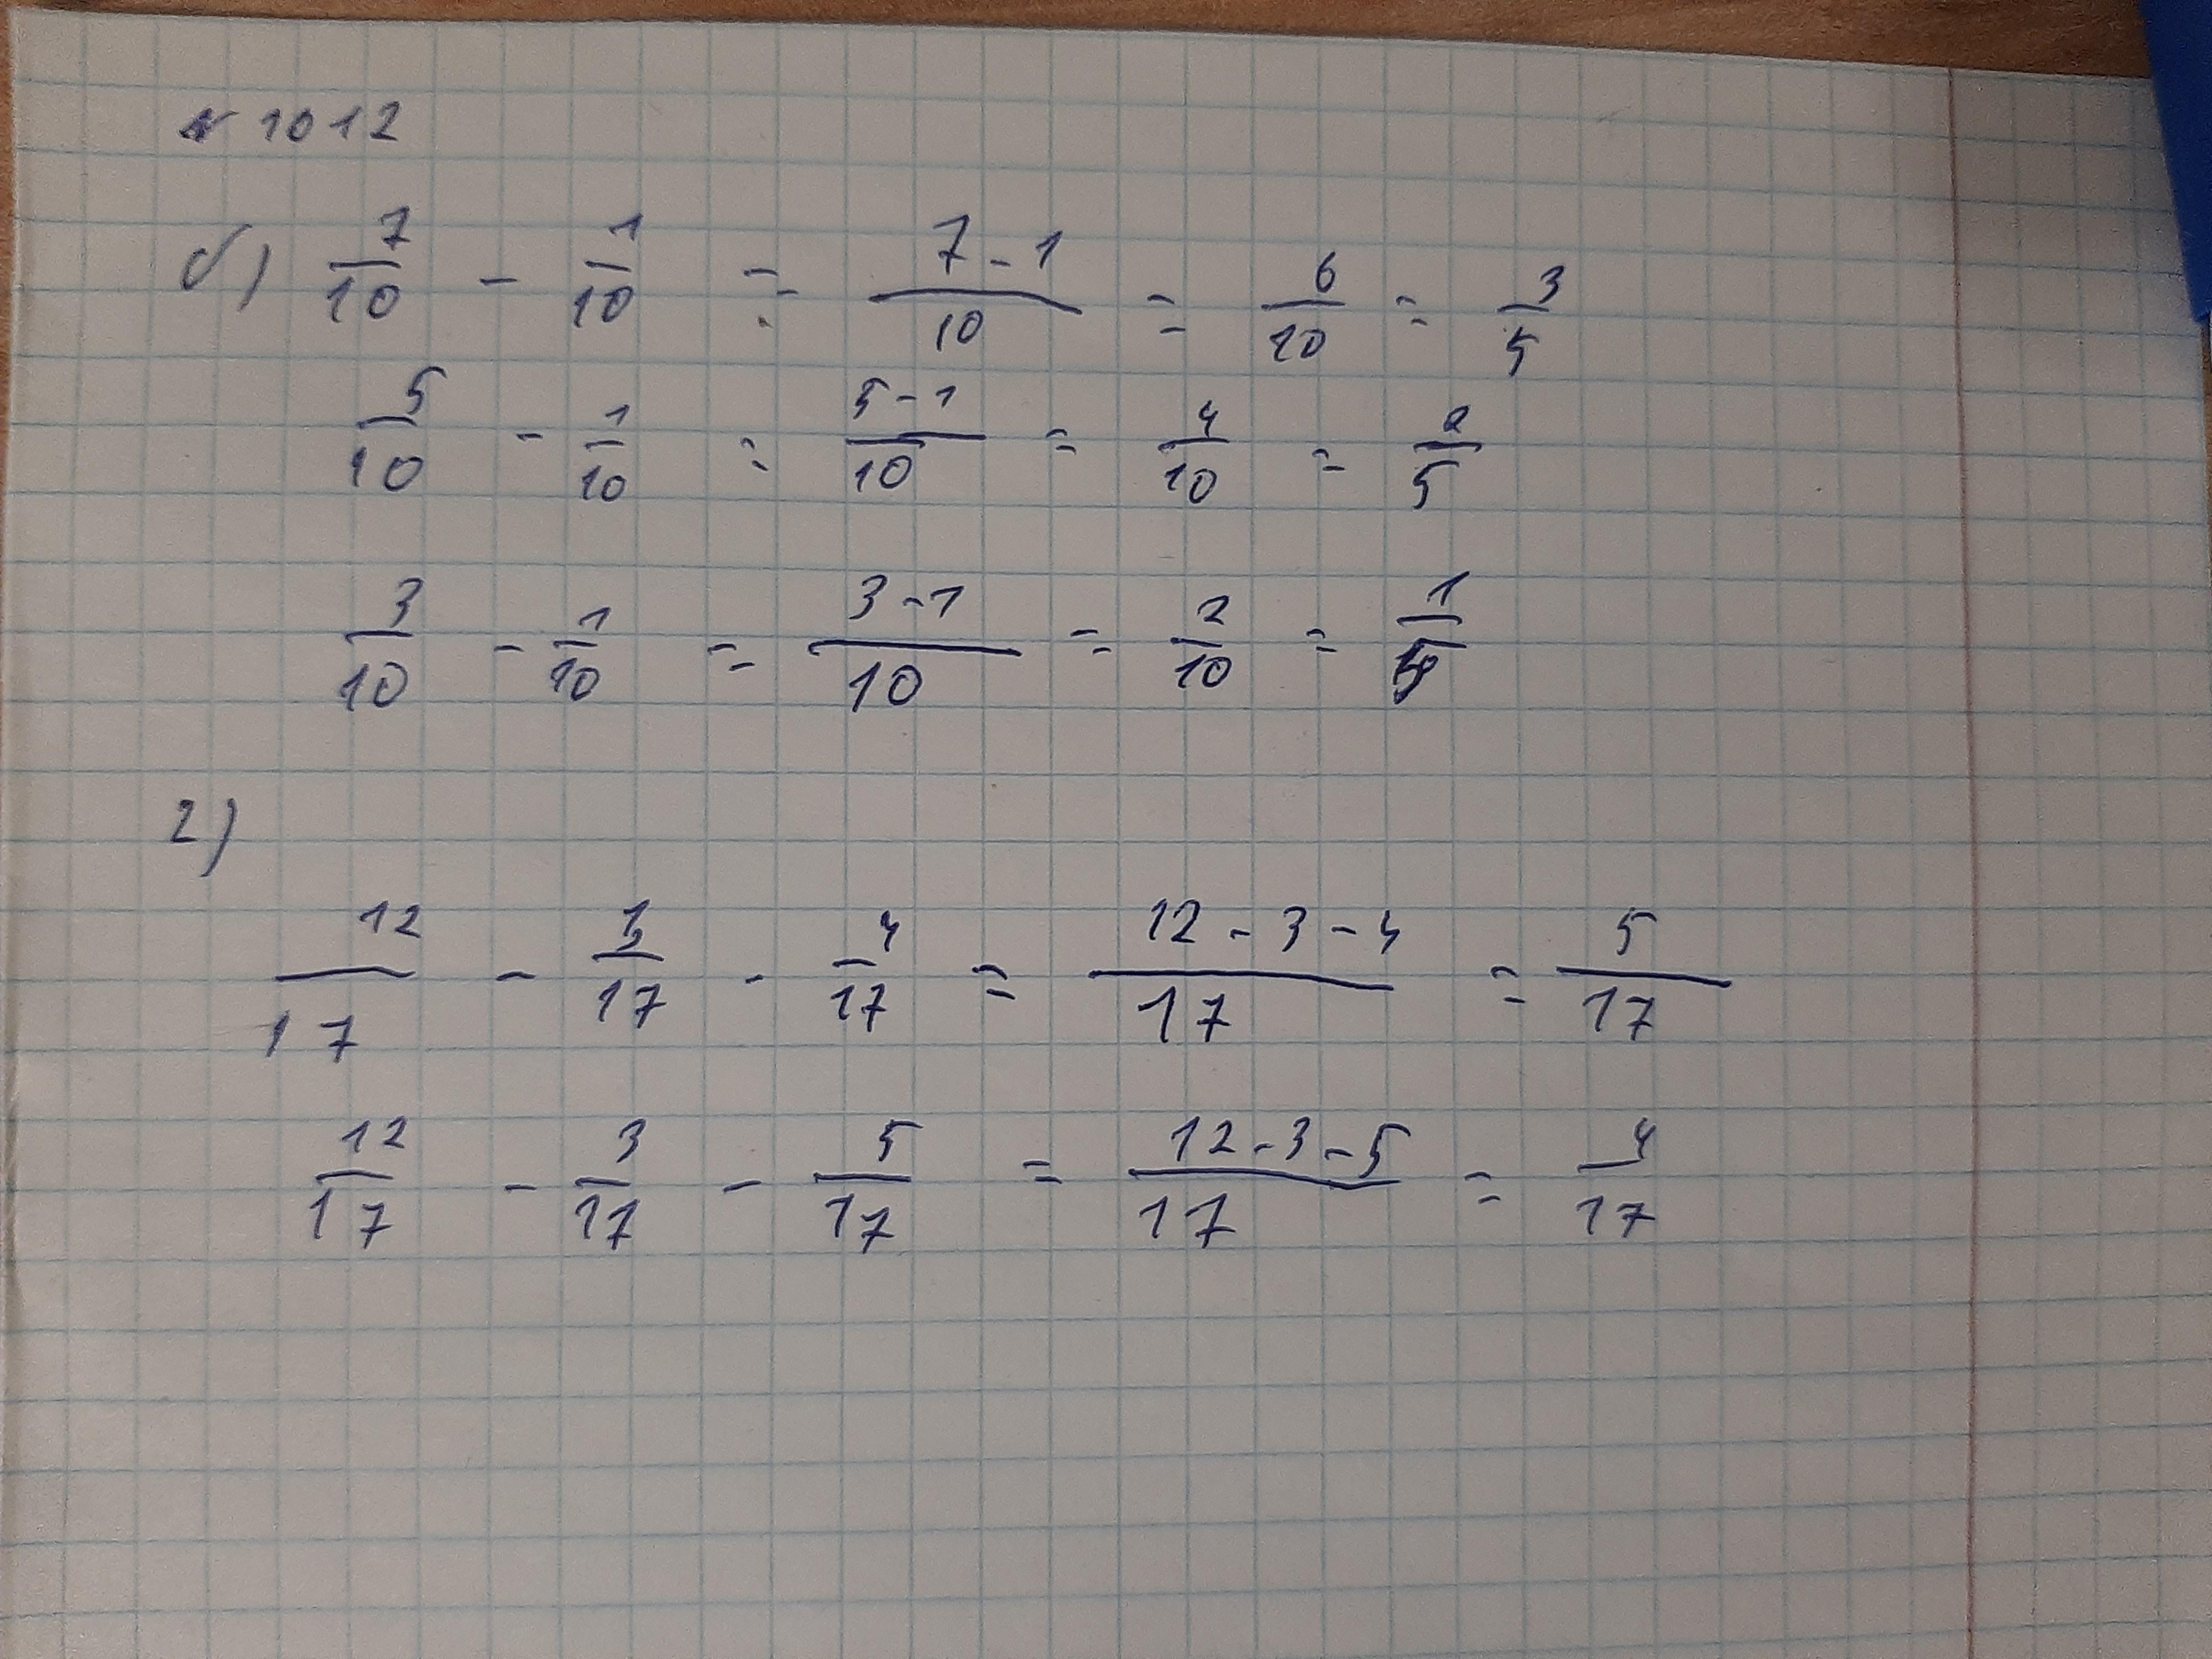 № 1012
б) 7/10 - 1/10 = (7-1)/10 = 6/10 = 3/5
5/10 - 1/10 = (5-1)/10 = 4/10 = 2/5
3/10 - 1/10 = (3-1)/10 = 2/10 = 1/5
г)
12/17 - 3/17 - 4/17 = (12-3-4)/17 = 5/17
12/17 - 3/17 - 5/17 = (12-3-5)/17 = 4/17